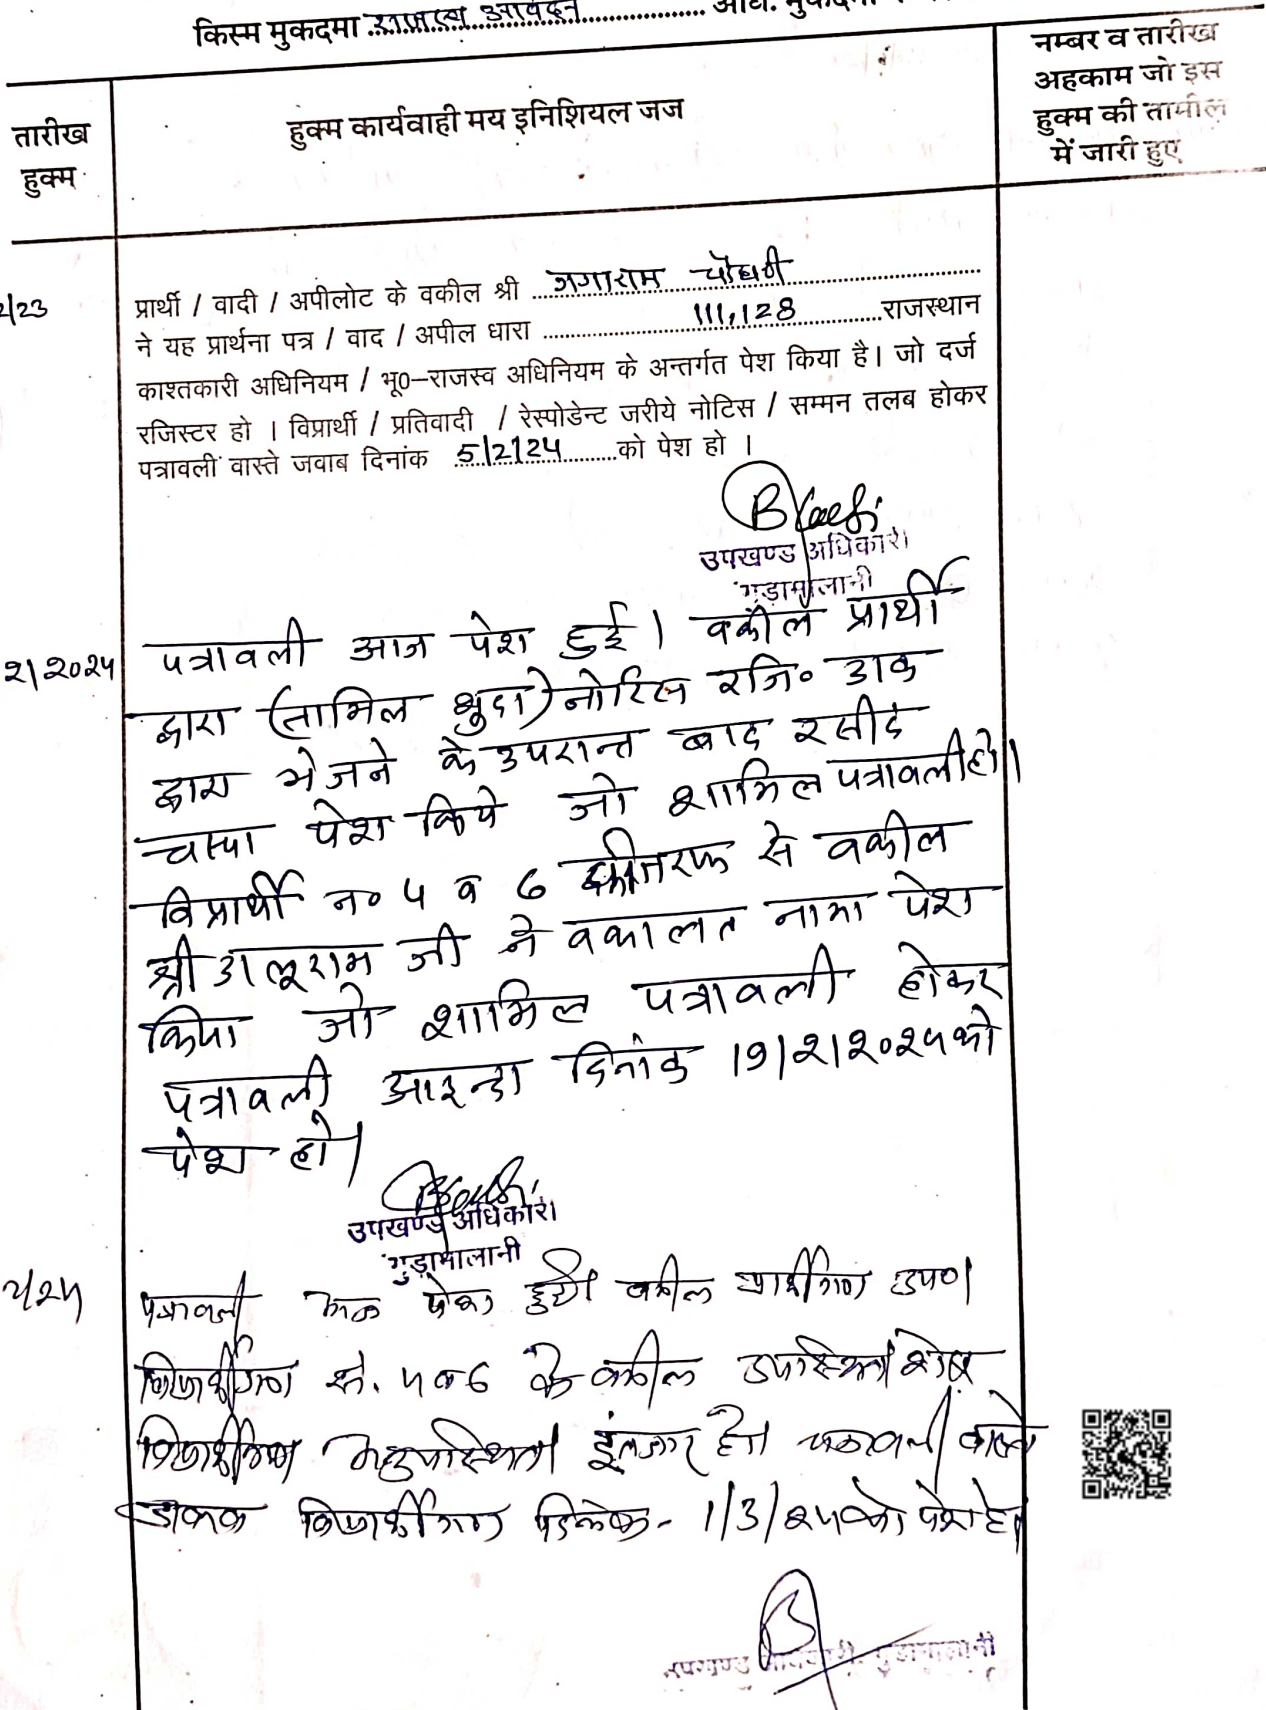 किस्म मुकदमा राजस्व आवेदन
तारीख हुक्म
हुक्म कार्यवाही मय इनिशियल जज
नम्बर व तारीख
अहकाम जो इस
हुक्म की तामील
में जारी हुए
2/23
प्रार्थी / वादी / अपीलोट के वकील श्री जगाराम चौधरी
ने यह प्रार्थना पत्र / वाद / अपील धारा 111,128 राजस्थान
काश्तकारी अधिनियम / भू0-राजस्व अधिनियम के अन्तर्गत पेश किया है। जो दर्ज
रजिस्टर हो । विप्रार्थी / प्रतिवादी / रेस्पोडेन्ट जरीये नोटिस / सम्मन तलब होकर
पत्रावली वास्ते जवाब दिनांक 5/2/24 को पेश हो ।
उपखण्ड अधिकारी
गुड़ामालानी
2/2024
पत्रावली आज पेश हुई। वकील प्रार्थी
द्वारा (तामिल शुदा) नोटिस रजि० डाक
द्वारा भेजने के उपरान्त बाद रसीद
चस्पा पेश किये जो शामिल पत्रावली हो।
विप्रार्थी न० 4 व 6 की तरफ से वकील
श्री डालूराम जी ने वकालत नामा पेश
किया जो शामिल पत्रावली होकर
पत्रावली आइन्दा दिनांक 19/2/2024 को
पेश हो।
उपखण्ड अधिकारी
गुड़ामालानी
2/24
पत्रावली पेश हुयी वकील प्रार्थीगण उप०।
विप्रार्थीगण सं. 4 व 6 के वकील उपस्थित। शेष
विप्रार्थीगण इंतजार हो। पत्रावली वास्ते
विप्रार्थीगण 1/3/24 को पेश हो।
उपखण्ड अधिकारी, गुड़ामालानी